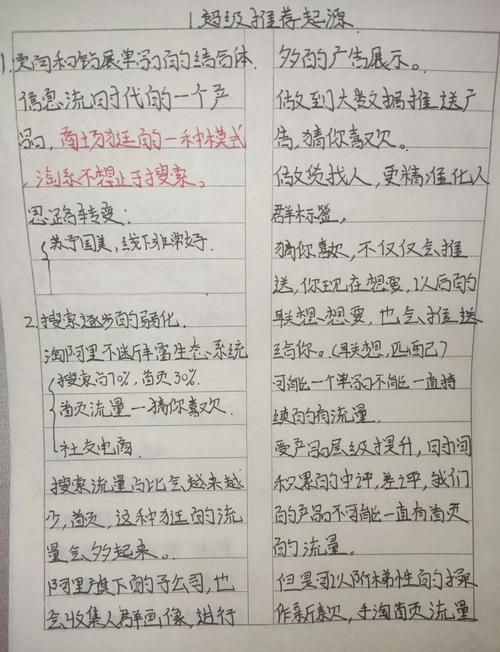 1.超级推荐起源
1.页面和钻展单品的结合体.
信息流时代的一个产
品,商场逛的一种模式
,淘系不想止于搜索。
思路转变:
苏宁国美,线下非常好.
2.搜索逐步的弱化.
淘阿里不断丰富生态系统
搜索占70%,首页30%.
首页流量—猜你喜欢.
社交电商.
搜索流量占比会越来越
少,首页,这种逛的流
量会多起来。
阿里旗下的子公司,也
会收集人群画像,进行
多的广告展示。
做到大数据推送产
告,猜你喜欢。
做货找人,更精准化人
群标签,
猜你喜欢,不仅仅会推
送,你现在想要,以后的
联想、想要,也会推送
给你。(联想,匹配)
可能一个单品不能一直持
续的有流量.
受产品层级提升,时间
积累的中评,差评,我们
的产品不可能一直有首页
的流量.
但是可以阶梯性的操
作新款,手淘首页流量